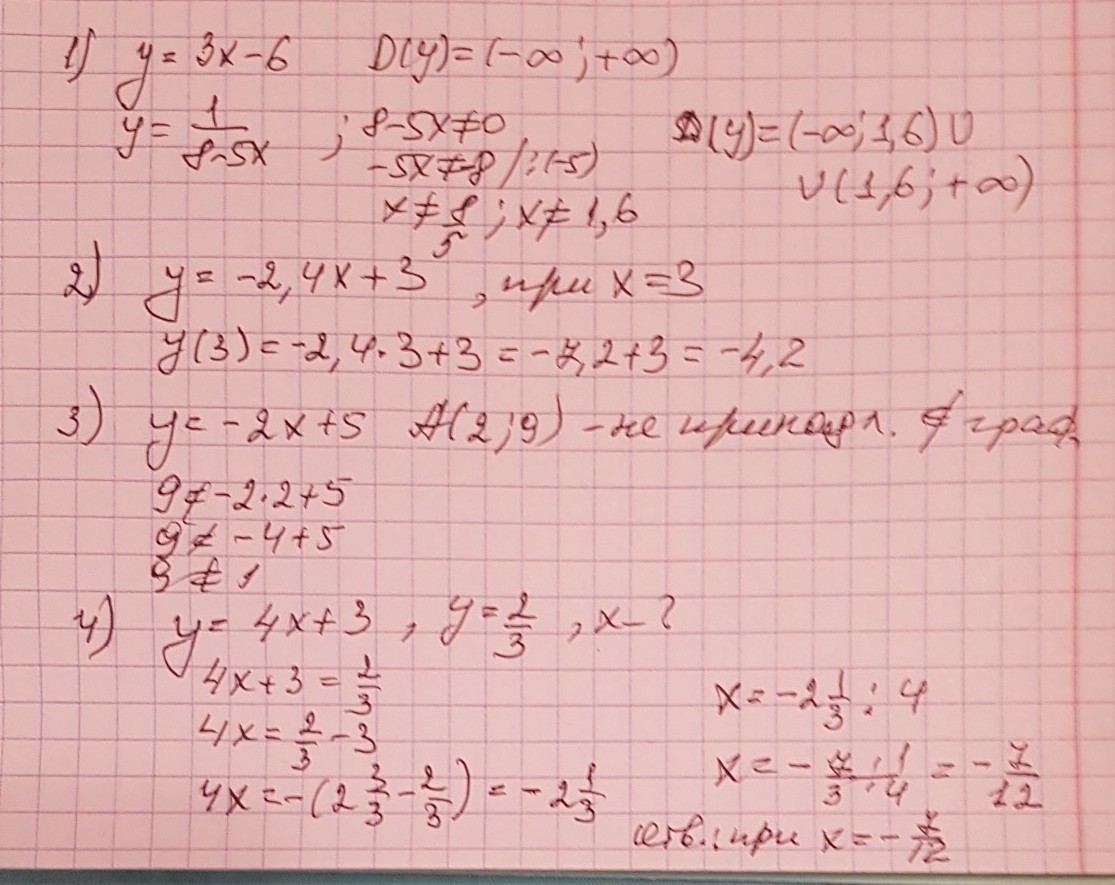 1) y = 3x - 6 D(y) = (-∞; +∞)
y = 1/(8-5x) ; 8-5x ≠ 0 D(y) = (-∞; 1,6) U
-5x ≠ -8 /:(-5) U (1,6; +∞)
x ≠ 8/5 ; x ≠ 1,6
2) y = -2,4x + 3 , при x = 3
y(3) = -2,4·3+3 = -7,2+3 = -4,2
3) y = -2x+5 A(2;9) - не принадл. граф.
9 ≠ -2·2+5
9 ≠ -4+5
9 ≠ 1
4) y = 4x+3 , y = 2/3 , x - ?
4x+3 = 2/3
4x = 2/3 - 3
4x = -(2 3/3 - 2/3) = -2 1/3
x = -2 1/3 : 4
x = - (7·1)/(3·4) = - 7/12
отв.: при x = - 7/12